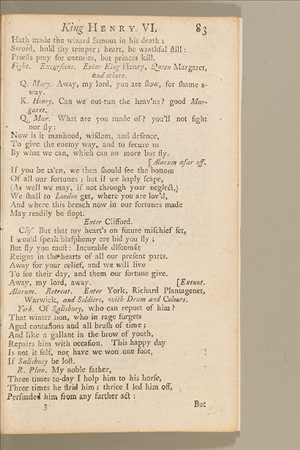 King HENRY VI. 83
Hath made the wizard famous in his death:
Sword, hold thy temper; heart, be wrathful still:
Priests pray for enemies, but princes kill.
Fight. Excursions. Enter King Henry, Queen Margaret,
and others.
Q. Mary. Away, my lord, you are slow, for shame a-
way.
K. Henry. Can we out-run the heav'ns? good Mar-
garet,
Q. Mar. What are you made of? you'll not fight
nor fly:
Now is it manhood, wisdom, and defence,
To give the enemy way, and to secure us
By what we can, which can no more but fly.
[Alarum afar off.
If you be ta'en, we then should see the bottom
Of all our fortunes: but if we haply scape,
(As well we may, if not through your neglect,)
We shall to London get, where you are lov'd,
And where this breach now in our fortunes made
May readily be stopt.
Enter Clifford.
Clif. But that my heart's on future mischief set,
I would speak blasphemy ere bid you fly;
But fly you must: Incurable discomfit
Reigns in the hearts of all our present parts.
Away for your relief, and we will live
To see their day, and them our fortune give.
Away, my lord, away. [Exeunt.
Alarum. Retreat. Enter York, Richard Plantagenet,
Warwick, and Soldiers, with Drum and Colours.
York. Of Salisbury, who can report of him?
That winter lion, who in rage forgets
Aged contusions and all brush of time;
And like a gallant in the brow of youth,
Repairs him with occasion. This happy day
Is not it self, nor have we won one foot,
If Salisbury be lost.
R. Plan. My noble father,
Three times to-day I holp him to his horse,
Three times he strid him: thrice I led him off,
Persuaded him from any farther act:
3 But